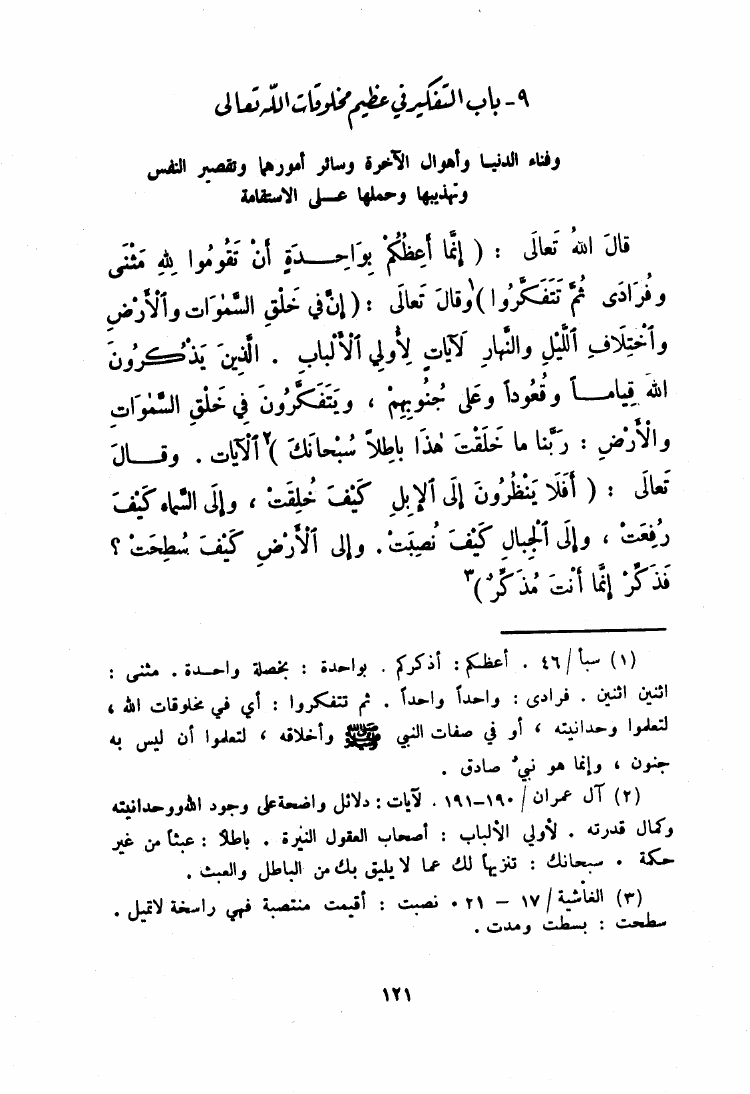 ٩ - باب التفكير في عظيم مخلوقات الله تعالى
وفناء الدنيا وأهوال الآخرة وسائر أمورهما وتقصير النفس
وتهذيبها وحملها على الاستقامة
قالَ اللهُ تَعالَى : ( إِنَّما أَعِظُكُمْ بِوَاحِدَةٍ أَنْ تَقُومُوا لِلهِ مَثْنَى
وفُرَادَى ثُمَّ تَتَفَكَّرُوا )١ وقالَ تَعالَى : ( إِنَّ في خَلْقِ السَّمٰوَاتِ والْأَرْضِ
وٱخْتِلَافِ ٱللَّيْلِ والنَّهارِ لَآياتٍ لِأُولي ٱلْأَلْبابِ . الَّذِينَ يَذْكُرُونَ
اللهَ قِياماً وقُعُوداً وعَلى جُنُوبِهِمْ ، ويَتَفَكَّرُونَ فِي خَلْقِ السَّمٰوَاتِ
والْأَرْضِ : رَبَّنا ما خَلَقْتَ هٰذَا باطِلاً سُبْحانَكَ )٢ ٱلْآيات . وقالَ
تَعالَى : ( أَفَلَا يَنْظُرُونَ إِلَى ٱلإِبِلِ كَيْفَ خُلِقَتْ ، وإِلَى السَّماءِ كَيْفَ
رُفِعَتْ ، وإِلَى ٱلْجِبالِ كَيْفَ نُصِبَتْ . وإلى ٱلْأَرْضِ كَيْفَ سُطِحَتْ ؟
فَذَكِّرْ إِنَّما أَنْتَ مُذَكِّرٌ )٣
(١) سبأ / ٤٦ . أعظكم : أذكركم . بواحدة : بخصلة واحدة . مثنى :
اثنين اثنين . فرادى : واحداً واحداً . ثم تتفكروا : أي في مخلوقات الله ،
لتعلموا وحدانيته ، أو في صفات النبي ﷺ وأخلاقه ، لتعلموا أن ليس به
جنون ، وإنما هو نبيٌ صادق .
(٢) آل عمران / ١٩٠-١٩١ . لآيات : دلائل واضحة على وجود الله ووحدانيته
وكمال قدرته . لأولي الألباب : أصحاب العقول النيرة . باطلاً : عبثاً من غير
حكمة . سبحانك : تنزيهاً لك عما لا يليق بك من الباطل والعبث .
(٣) الغاشية / ١٧ - ٢١ . نصبت : أقيمت منتصبة فهي راسخة لا تميل .
سطحت : بسطت ومدت .
١٢١